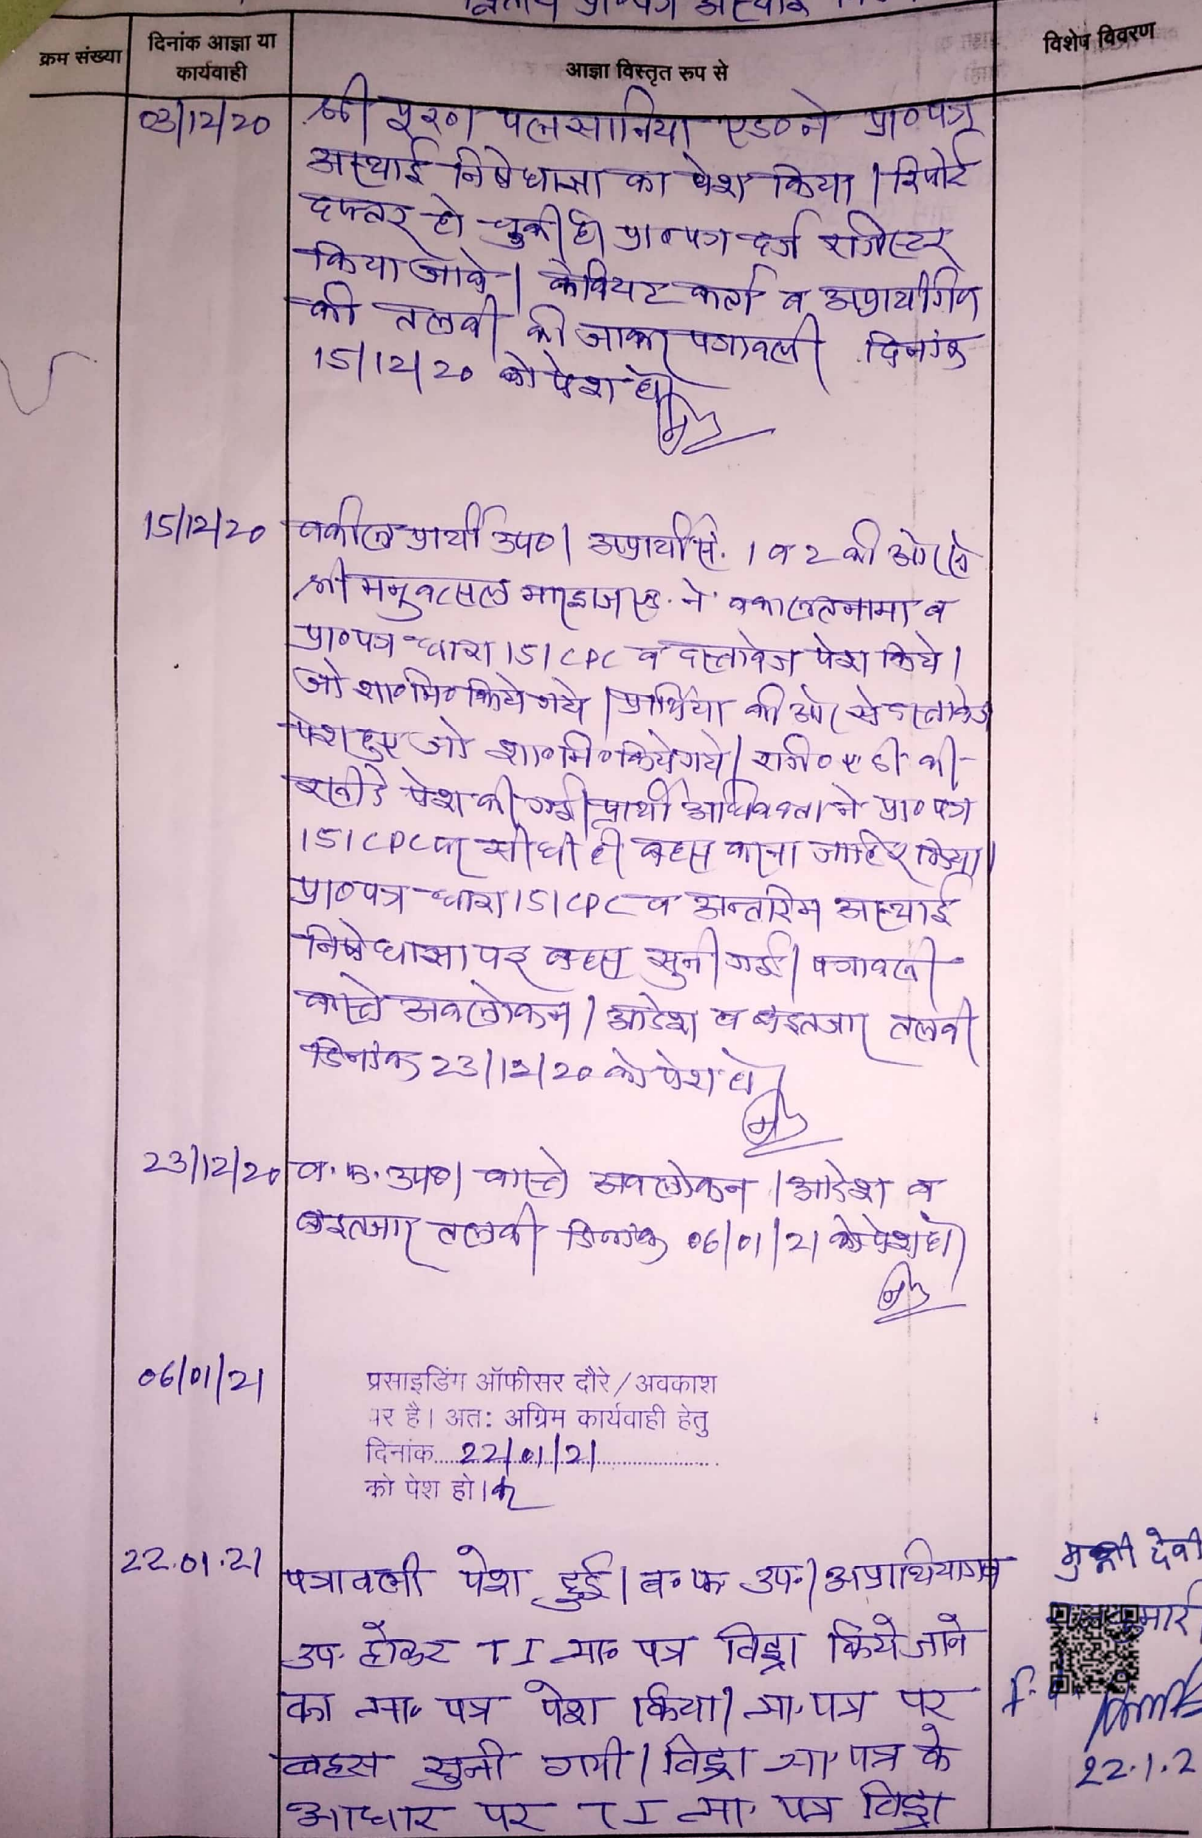 क्रम संख्या
दिनांक आज्ञा या
कार्यवाही
आज्ञा विस्तृत रुप से
विशेष विवरण
03/12/20
श्री पूरण पलसानिया एड० ने प्रा०पत्र
अस्थाई निषेधाज्ञा का पेश किया। रिपोर्ट
दफ्तर हो चुकी है। प्रा०पत्र दर्ज रजिस्टर
किया जावे। केवियट कर्ता व अप्रार्थीगण
की तलबी की जाकर पत्रावली दिनांक
15/12/20 को पेश हो।
15/12/20
वकील प्रार्थी उप०। अप्रार्थी सं. 1 व 2 की ओर से
श्री मनुवत्सल भारद्वाज एड. ने वकालतनामा व
प्रा०पत्र धारा 151 CPC व दस्तावेज पेश किये।
जो शा०मि० किये गये। प्रार्थिया की ओर से दस्तावेज
पेश हुए जो शा०मि० किये गये। रजि० ए डी की
रसीदे पेश की गई। प्रार्थी अधिवक्ता ने प्रा०पत्र
151 CPC पर सीधी ही बहस करना जाहिर किया।
प्रा०पत्र धारा 151 CPC व अन्तरिम अस्थाई
निषेधाज्ञा पर बहस सुनी गई। पत्रावली
वास्ते अवलोकन। आदेश व बइन्तजार तलबी
दिनांक 23/12/20 को पेश हो।
23/12/20
व.फ. उप०। वास्ते अवलोकन। आदेश व
बइन्तजार तलबी दिनांक 06/01/21 को पेश हो।
06/01/21
प्रसाइडिंग ऑफीसर दौरे/अवकाश
पर है। अतः अग्रिम कार्यवाही हेतु
दिनांक....22/01/21....
को पेश हो।
22.01.21
पत्रावली पेश हुई। व०फ० उप०। अप्रार्थीयागण
उप. होकर TI प्रा० पत्र विड्रा किये जाने
का प्रा० पत्र पेश किया। प्रा. पत्र पर
बहस सुनी गयी। विड्रा प्रा. पत्र के
आधार पर TI प्रा. पत्र विड्रा
मुन्नी देवी
22.1.2